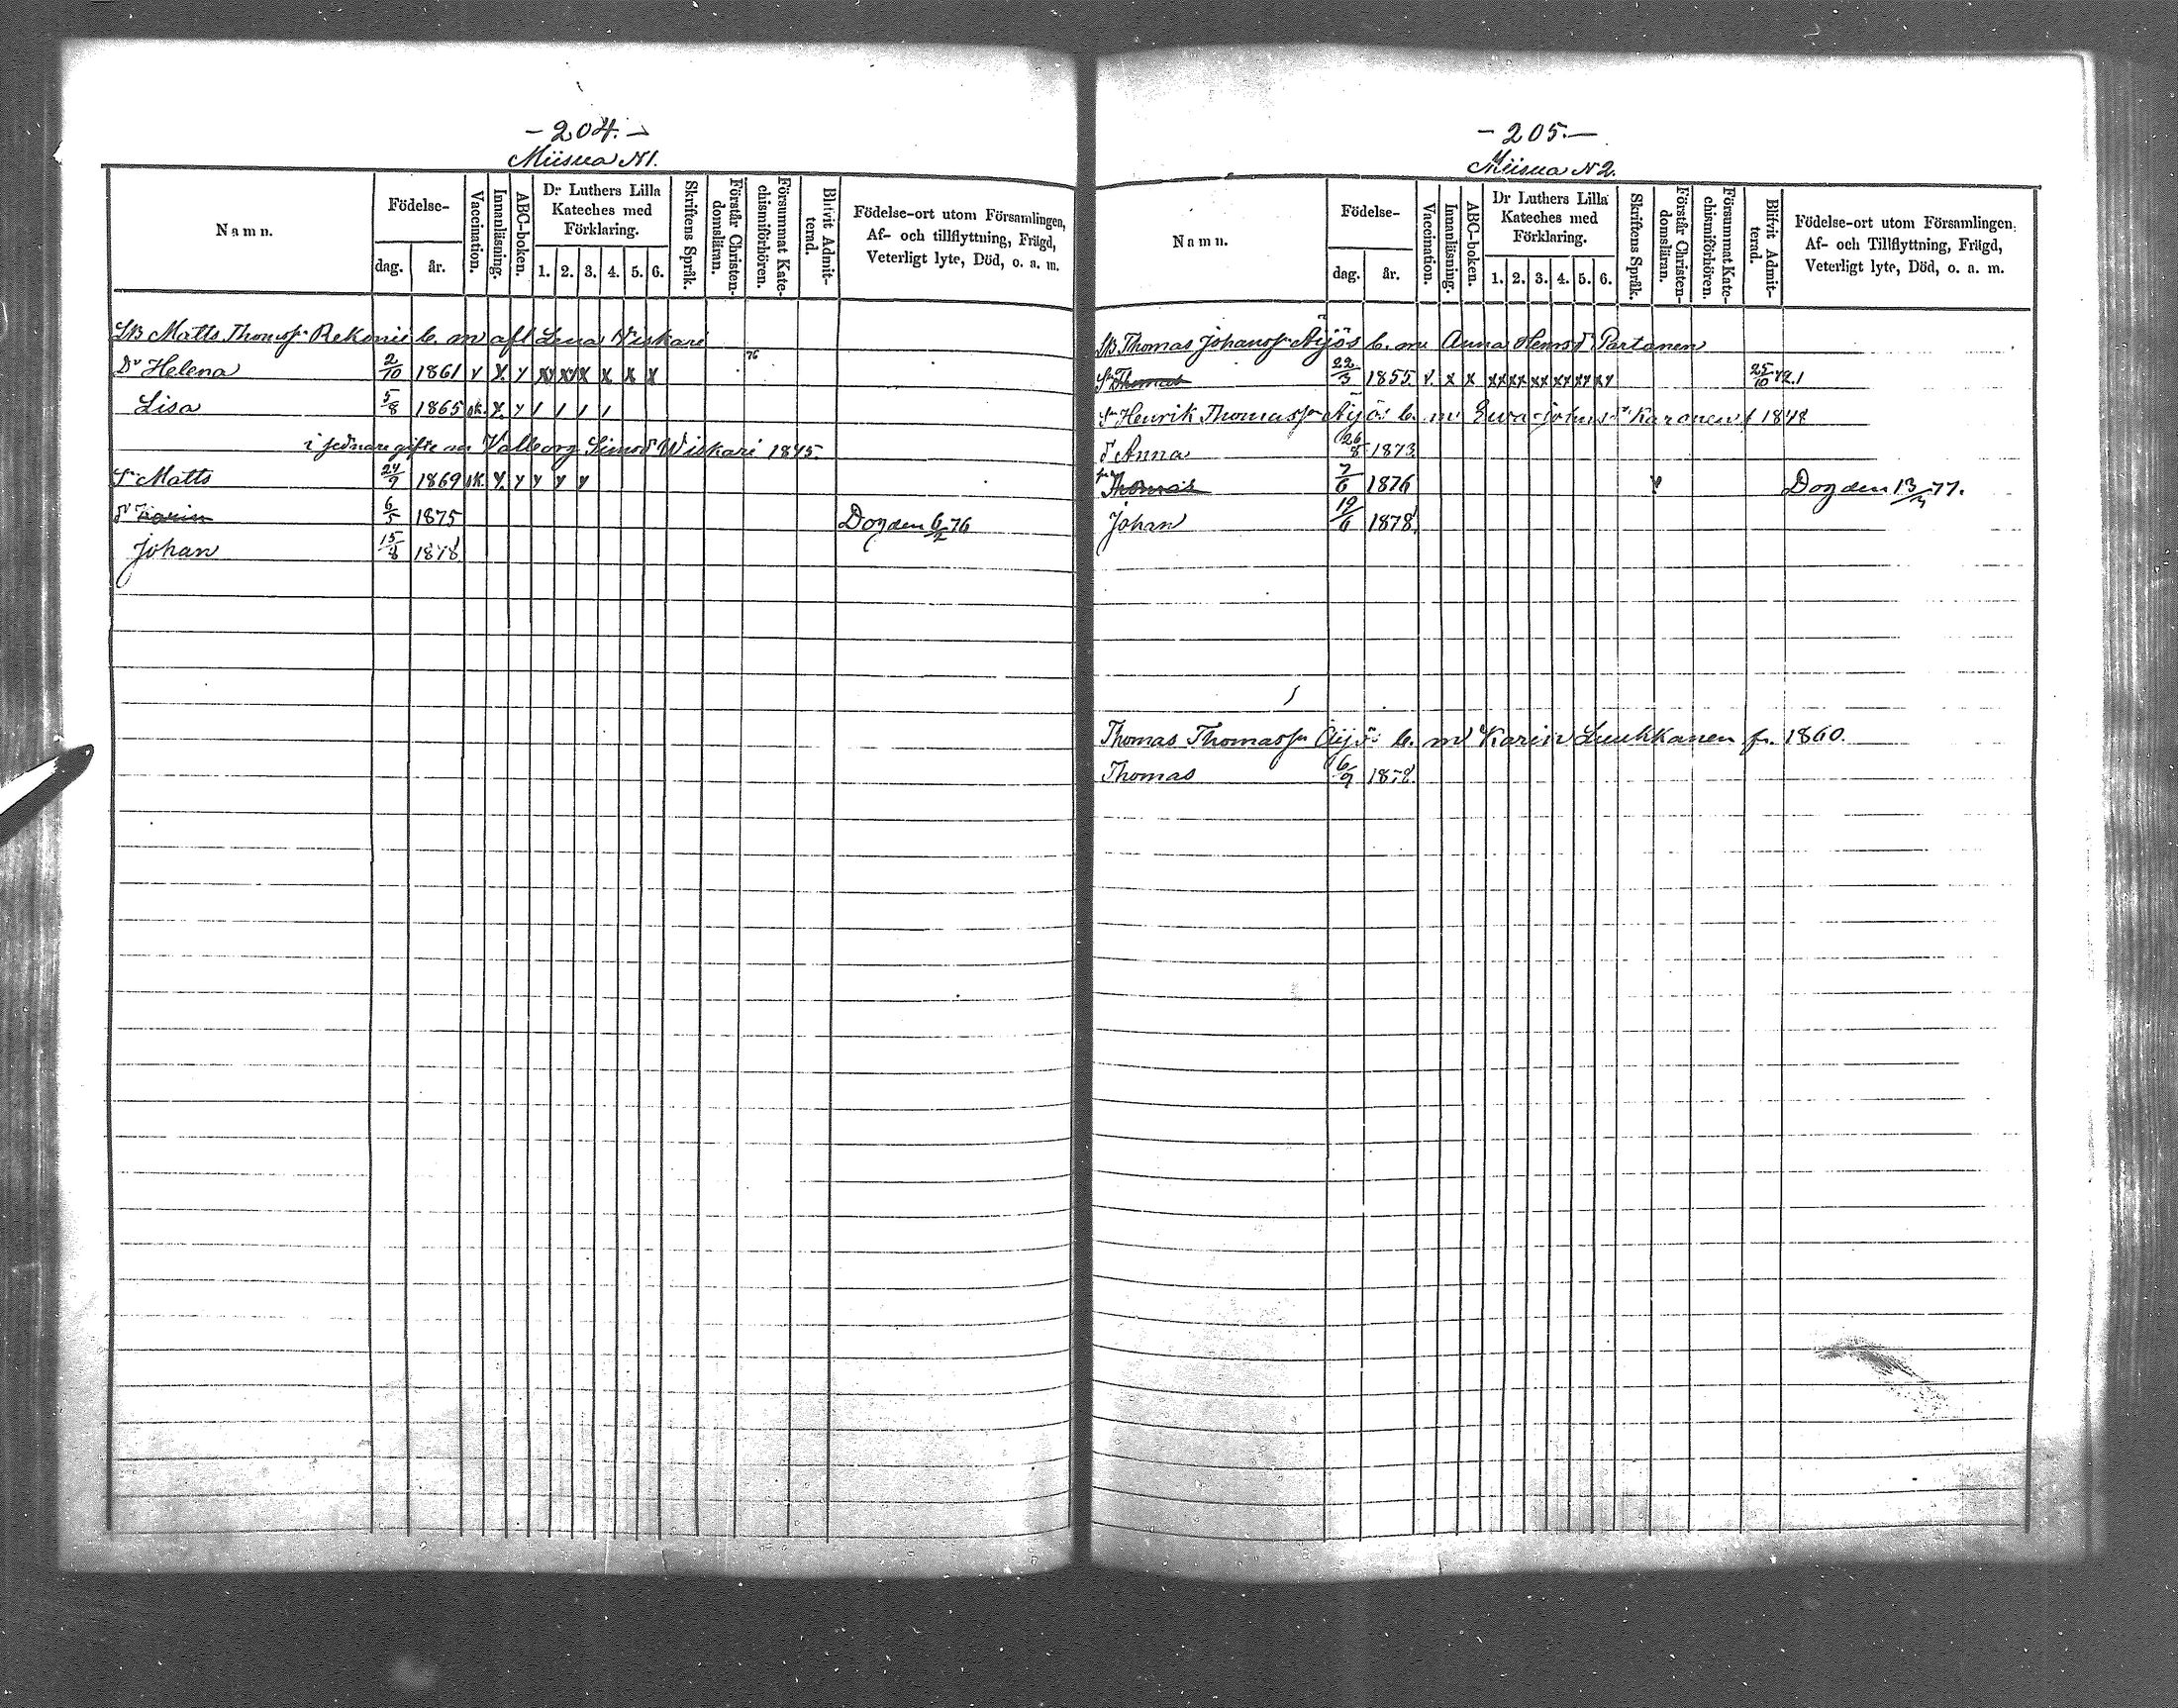 - 204. -
Miisua N1.
Namn.
Födelse-
dag.
år.
Vaccination.
Innanläsning.
ABC-boken.
Dr Luthers Lilla
Kateches med
Förklaring.
1. 2. 3. 4. 5. 6.
Skriftens Språk.
Förstår Christen-
domsläran.
Försummat Kate-
chismiförhören.
Blifvit Admit-
terad.
Födelse-ort utom Församlingen,
Af- och tillflyttning, Frägd,
Veterligt lyte, Död, o. a. m.
Matts Thomss. Rekonie b. m afl Lena Wiskari
Dr Helena 2/10 1861 v x. y xy xy x x x x 76
Lisa 5/8 1865 ok. x. y / / / /
i sednare gifte m Valborg Simsdr Wiskari 1845
Sn Matts 24/9 1869 ok x. y y y y
dr Karin 6/5 1875 Dog den 6/2 76
Johan 15/8 1878.
- 205. -
Miisua N2.
Namn.
Födelse-
dag.
år.
Vaccination.
Innanläsning.
ABC-boken.
Dr Luthers Lilla
Kateches med
Förklaring.
1. 2. 3. 4. 5. 6.
Skriftens Språk.
Förstår Christen-
domsläran.
Försummat Kate-
chismiförhören.
Blifvit Admit-
terad.
Födelse-ort utom Församlingen,
Af- och Tillflyttning, Frägd,
Veterligt lyte, Död, o. a. m.
Thomas Johanss. Äijös b. m Anna Henrsdr Partanen
Sn Thomas 22/3 1855. v. x x xx xx xx xx xx xy 25/10 72.
Sn Henrik Thomass. Äijös b. m Ewa Johnsdr Karonen f 1848
dr Anna 26/8 1873
Sn Thomas 7/6 1876 Dog den 13/3 77.
Johan 19/6 1878.
Thomas Thomass. Äijös b. m Karin Luukkanen f. 1860.
Thomas 6/9 1878.